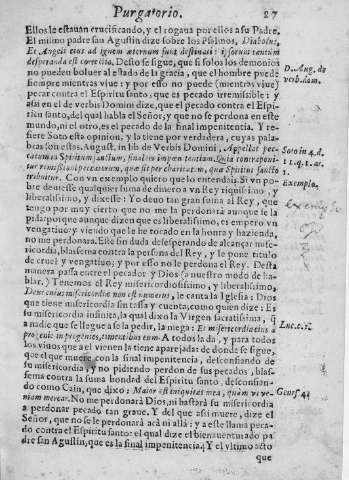 Purgatorio. 27
Ellos le estauan crucificando, y el rogaua por ellos a su Padre.
El mismo padre san Agustin dize sobre los Psalmos, Diabolus,
Et Angeli eius ad ignem æternum sunt destinati: ipsorum tantùm
desperanda est correctio. Desto se sigue, que si solos los demonios
no pueden boluer al estado de la gracia, que el hombre puede
siempre mientras viue: y por esso no puede (mientras viue)
pecar contra el Espiritu santo, que es pecado irremissible: y
assi en el de verbis Domini dize, que el pecado contra el Espi-
ritu santo, del qual habla el Señor; y que no se perdona en este
mundo, ni el otro, es el pecado de la final impenitencia. Y re-
fiere Soto esta opinion, y la tiene por verdadera, cuyas pala-
bras son estas. August. in lib de Verbis Domini, Appellat pec-
catum in Spiritum sanctum, finalem impœnitentiam. Quia contraponi-
tur remissioni peccatorum, quæ fit per charitatem, quæ Spiritui sancto
tribuitur. Con vn exemplo quiero que lo entendais. Si vn po-
bre deuiesse qualquier suma de dinero a vn Rey riquissimo, y
liberalissimo, y dixesse: Yo deuo tan gran suma al Rey, que
tengo por muy cierto que no me la perdonarà aunque se la
pida: porque aunque dizen que es liberalissimo, es empero vn
vengatiuo: y viendo que le he tocado en la honra y hazienda,
no me perdonarà. Este sin duda desesperando de alcançar mise-
ricordia, blasfema contra la persona del Rey, y le pone titulo
de cruel y vengatiuo: y por esso no le perdona el Rey. Desta
manera passa entre el pecador y Dios (a nuestro modo de ha-
blar.) Tenemos el Rey misericordiosissimo, y liberalissimo,
Deus cuius misericordiæ non est numerus, le canta la Iglesia: Dios
que tiene misericordia sin tassa y cuenta, como quien dize: Es
su misericordia infinita, la qual dixo la Virgen sacratissima, q̃
a nadie que se llegue a se la pedir, la niega: Et misericordia eius à
progenie in progenies, timentibus eum. A todos la dà, y para todos
los viuos que a el vienen la tiene aparejada: de donde se sigue,
que el que muere con la final impenitencia, desconfiando de
su misericordia, y no pidiendo perdon de sus pecados, blas-
fema contra la suma bondad del Espiritu santo, desconfian-
do como Cain, que dixo: Maior est iniquitas mea, quàm vt ve-
niam merear. No me perdonarà Dios, ni bastarà su misericordia
a perdonar pecado tan graue. Y del que assi muere, dize el
Señor, que no se le perdonarà acà ni allà: y a este llama peca-
do contra el Espiritu santo: el qual dize el bienauenturado pa
dre san Agustin, que es la final impenitencia. Y el vltimo acto
que
D. Aug. de
verb. dom.
Soto in 4. d.
Exemplo.
exemplo
Luc. c. 1.
Genes. 4.